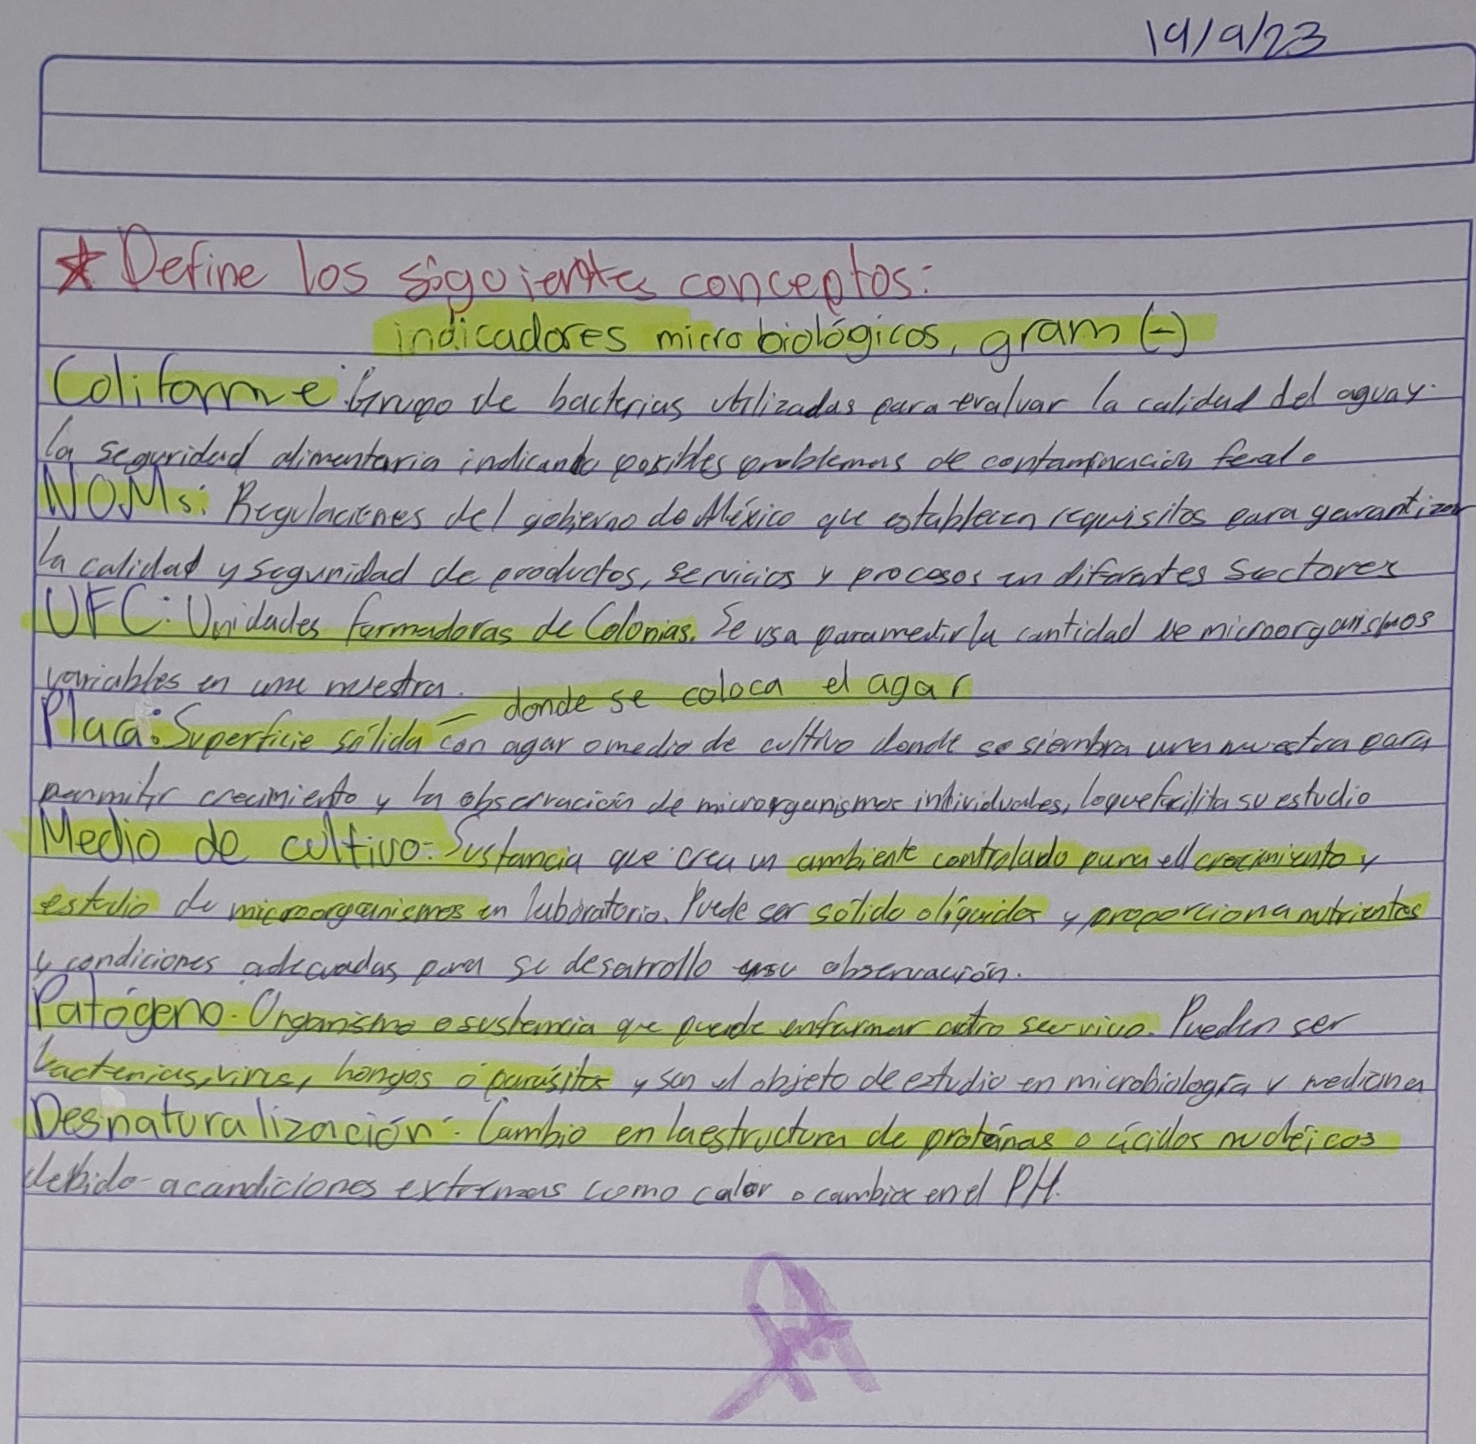 19/9/23
★ Define los siguientes conceptos:
indicadores microbiológicos, gram (-)
Coliforme: Grupo de bacterias utilizadas para evaluar la calidad del agua y
la seguridad alimentaria indicando posibles problemas de contaminación fecal.
NOMs: Regulaciones del gobierno de México que establecen requisitos para garantizar
la calidad y seguridad de productos, servicios y procesos en diferentes sectores
UFC: Unidades formadoras de Colonias. Se usa para medir la cantidad de microorganismos
variables en una muestra.
donde se coloca el agar
Placa: Superficie sólida con agar o medio de cultivo donde se siembra una muestra para
permitir crecimiento y la observación de microorganismos individuales, lo que facilita su estudio
Medio de cultivo: Sustancia que crea un ambiente controlado para el crecimiento y
estudio de microorganismos en laboratorio. Puede ser sólido o líquidos y proporciona nutrientes
y condiciones adecuadas para su desarrollo y su observación.
Patógeno: Organismo o sustancia que puede enfermar a otro ser vivo. Pueden ser
bacterias, virus, hongos o parásitos y son el objeto de estudio en microbiología y medicina
Desnaturalización: Cambio en la estructura de proteínas o ácidos nucleicos
debido a condiciones extremas como calor o cambios en el PH.